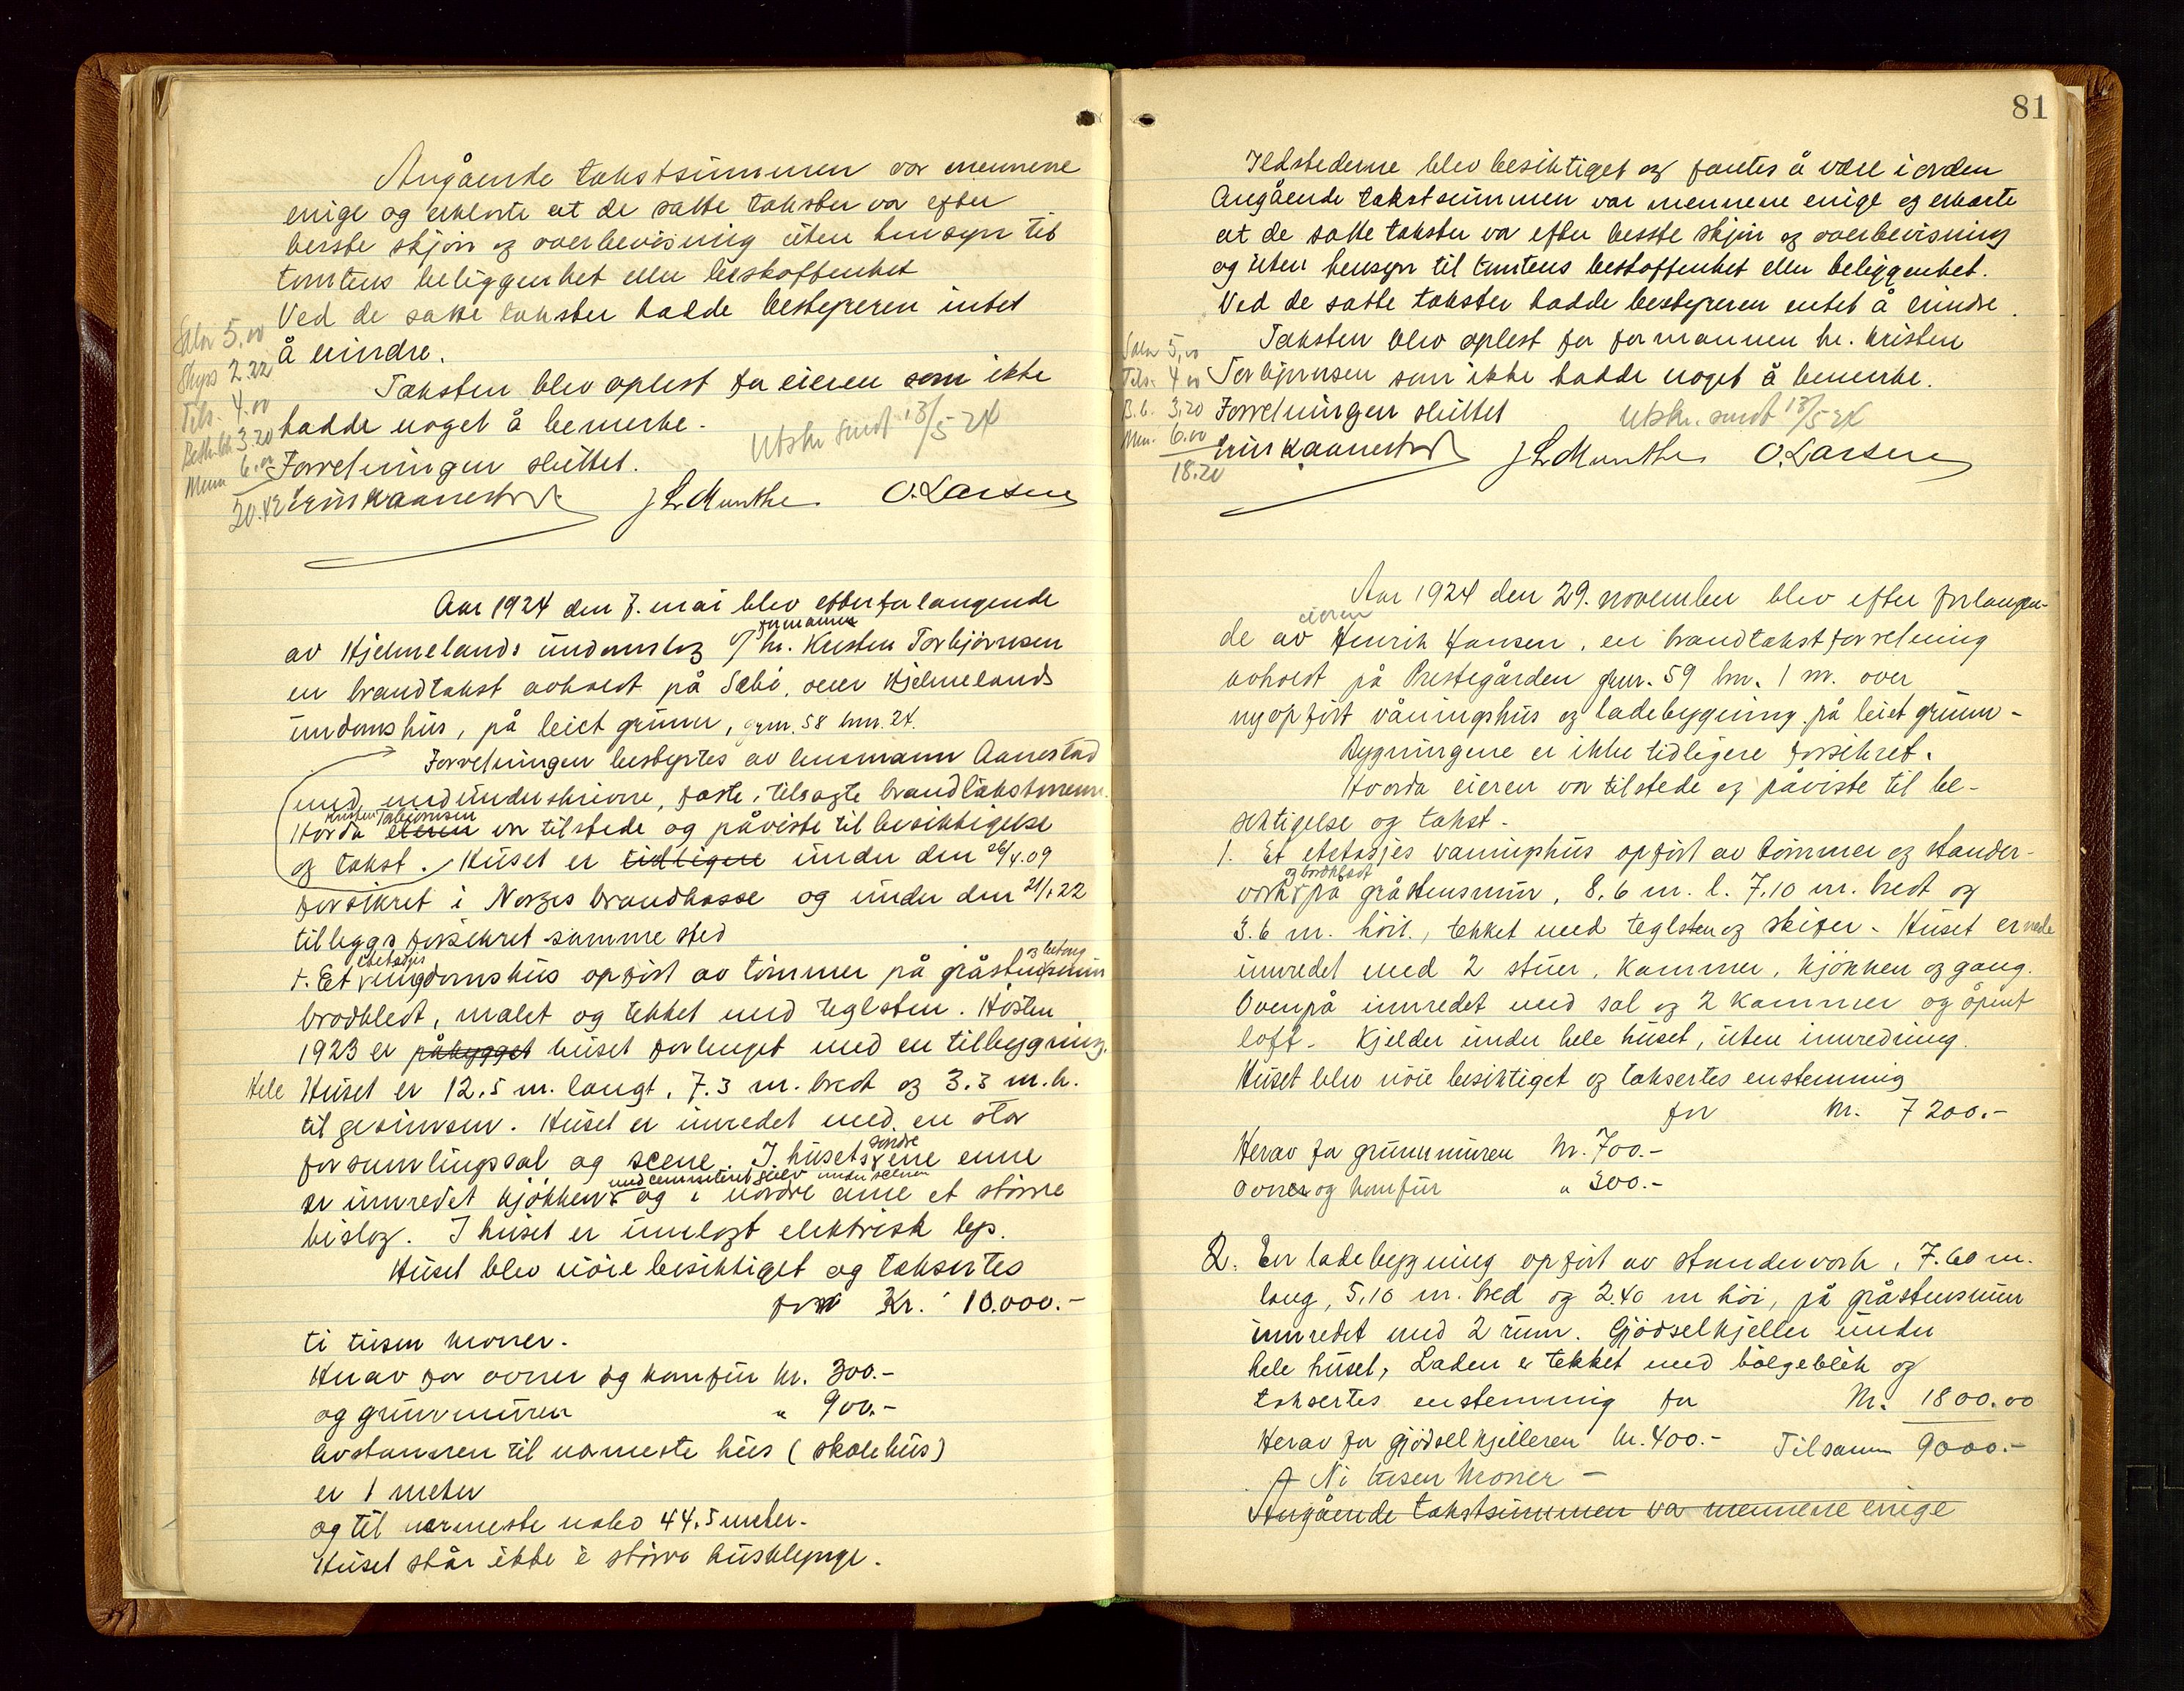 Angående takstsummen var mennene
enige og erklærte at de satte takster var efter
berste skjøn og overbevisning uten hensyn til
tomtens beliggenhet eller beskaffenhet
Ved de satte takster hadde bestyreren intet
å erindre.
Taksten blev oplest for eieren som ikke
hadde noget å bemerke.
Utskr sendt 13/5 24
Forretningen sluttet.
Salær 5.00
Skyss 2.22
Tils. 4.00
3.20
Menn 6.00
20.42
Aanestad J L Munthe O. Larsen
Aar 1924 den 7. mai blev efter forlangende
av Hjelmelands undomslag v/ formannen hr. Kristen Torbjørnsen
en brandtakst avholdt på Sæbø, over Hjelmelands
undomshus, på leiet grunn, grnr. 58 bnr. 24.
Forretningen bestyrtes av lensmann Aanestad
med medunderskrivne, faste, tilsagte brandtakstmenn.
Hvorda eieren Kristen Torbjørnsen var tilstede og påviste til besiktigelse
og takst. Huset er tidligere under den 26/4.09
forsikret i Norges brandkasse og under den 21/1.22
tilleggsforsikret samme sted
1. Et etetasjes ungdomshus opført av tømmer på gråstens og betong mur
bordkledt, malet og tekket med teglsten. Høsten
1923 er påbygget huset forlenget med en tilbygning.
Hele Huset er 12.5 m. langt, 7.3 m. bredt og 3.3 m. h.
til gesimsen. Huset er inredet med en stor
forsamlingssal og scene. I husets søndre ene enne
er innredet kjøkken med cementeret gulv under scenen og i nordre enne et større
bislag. I huset er innlagt elektrisk lys.
Huset blev nøie besiktiget og taksertes
for Kr. 10.000.-
ti tusen kroner.
Herav for ovner og komfur kr. 300.-
og grunnmuren " 900.-
Avstannen til nærmeste hus (skolehus)
er 1 meter
og til nærmeste nabo 44.5 meter.
Huset står ikke i større husklynge.
81
Ildstederne blev besiktiget og fantes å være i orden
Angående takstsummen var mennene enige og erklærte
at de satte takster var efter besste skjøn og overbevisning
og uten hensyn til tomtens beskaffenhet eller beliggenhet.
Ved de satte takster hadde bestyreren intet å erindre.
Taksten blev oplest for formannen hr. Kristen
Torbjørnsen som ikke hadde noget å bemerke.
Forretningen sluttet
Utskr. sendt 13/5 24
Salær 5.00
Tils. 4.00
B.b. 3.20
Men. 6.00
18.20
Aanestad J L Munthe O. Larsen
Aar 1924 den 29. november blev efter forlangen-
de av eieren Henrik Hansen, en brandtakstforretning
avholdt på Prestegården grnr. 59 bnr. 1 m. over
nyopført våningshus og ladebygning på leiet grunn-
Bygningene er ikke tidligere forsikret.
Hvorda eieren var tilstede og påviste til be-
siktigelse og takst.
1. Et etetasjes våningshus opført av tømmer og stander-
verk og bordkledt på gråstensmur, 8.6 m. l. 7.10 m. bredt og
3.6 m. høit, tekket med teglsten og skifer. Huset er nede
innredet med 2 stuer, kammer, kjøkken og gang.
Ovenpå innredet med sal og 2 kammer og åpent
loft. Kjelder under hele huset, uten innredning.
Huset blev nøie besiktiget og taksertes enstemmig
for kr. 7200.-
Herav for grunnmuren kr. 700.-
Ovner og komfur " 300.-
2. En ladebygning opført av standerverk, 7.60 m.
lang, 5.10 m. bred og 2.40 m høi, på gråstensmur
innredet med 2 rum. Gjødselkjeller under
hele huset, Laden er tekket med bølgeblik og
taksertes enstemmig for kr. 1800.00
Herav for gjødselkjelleren kr. 400.- Tilsamm 9000.-
Ni tusen kroner -
Angående takstsummen var mennene enige